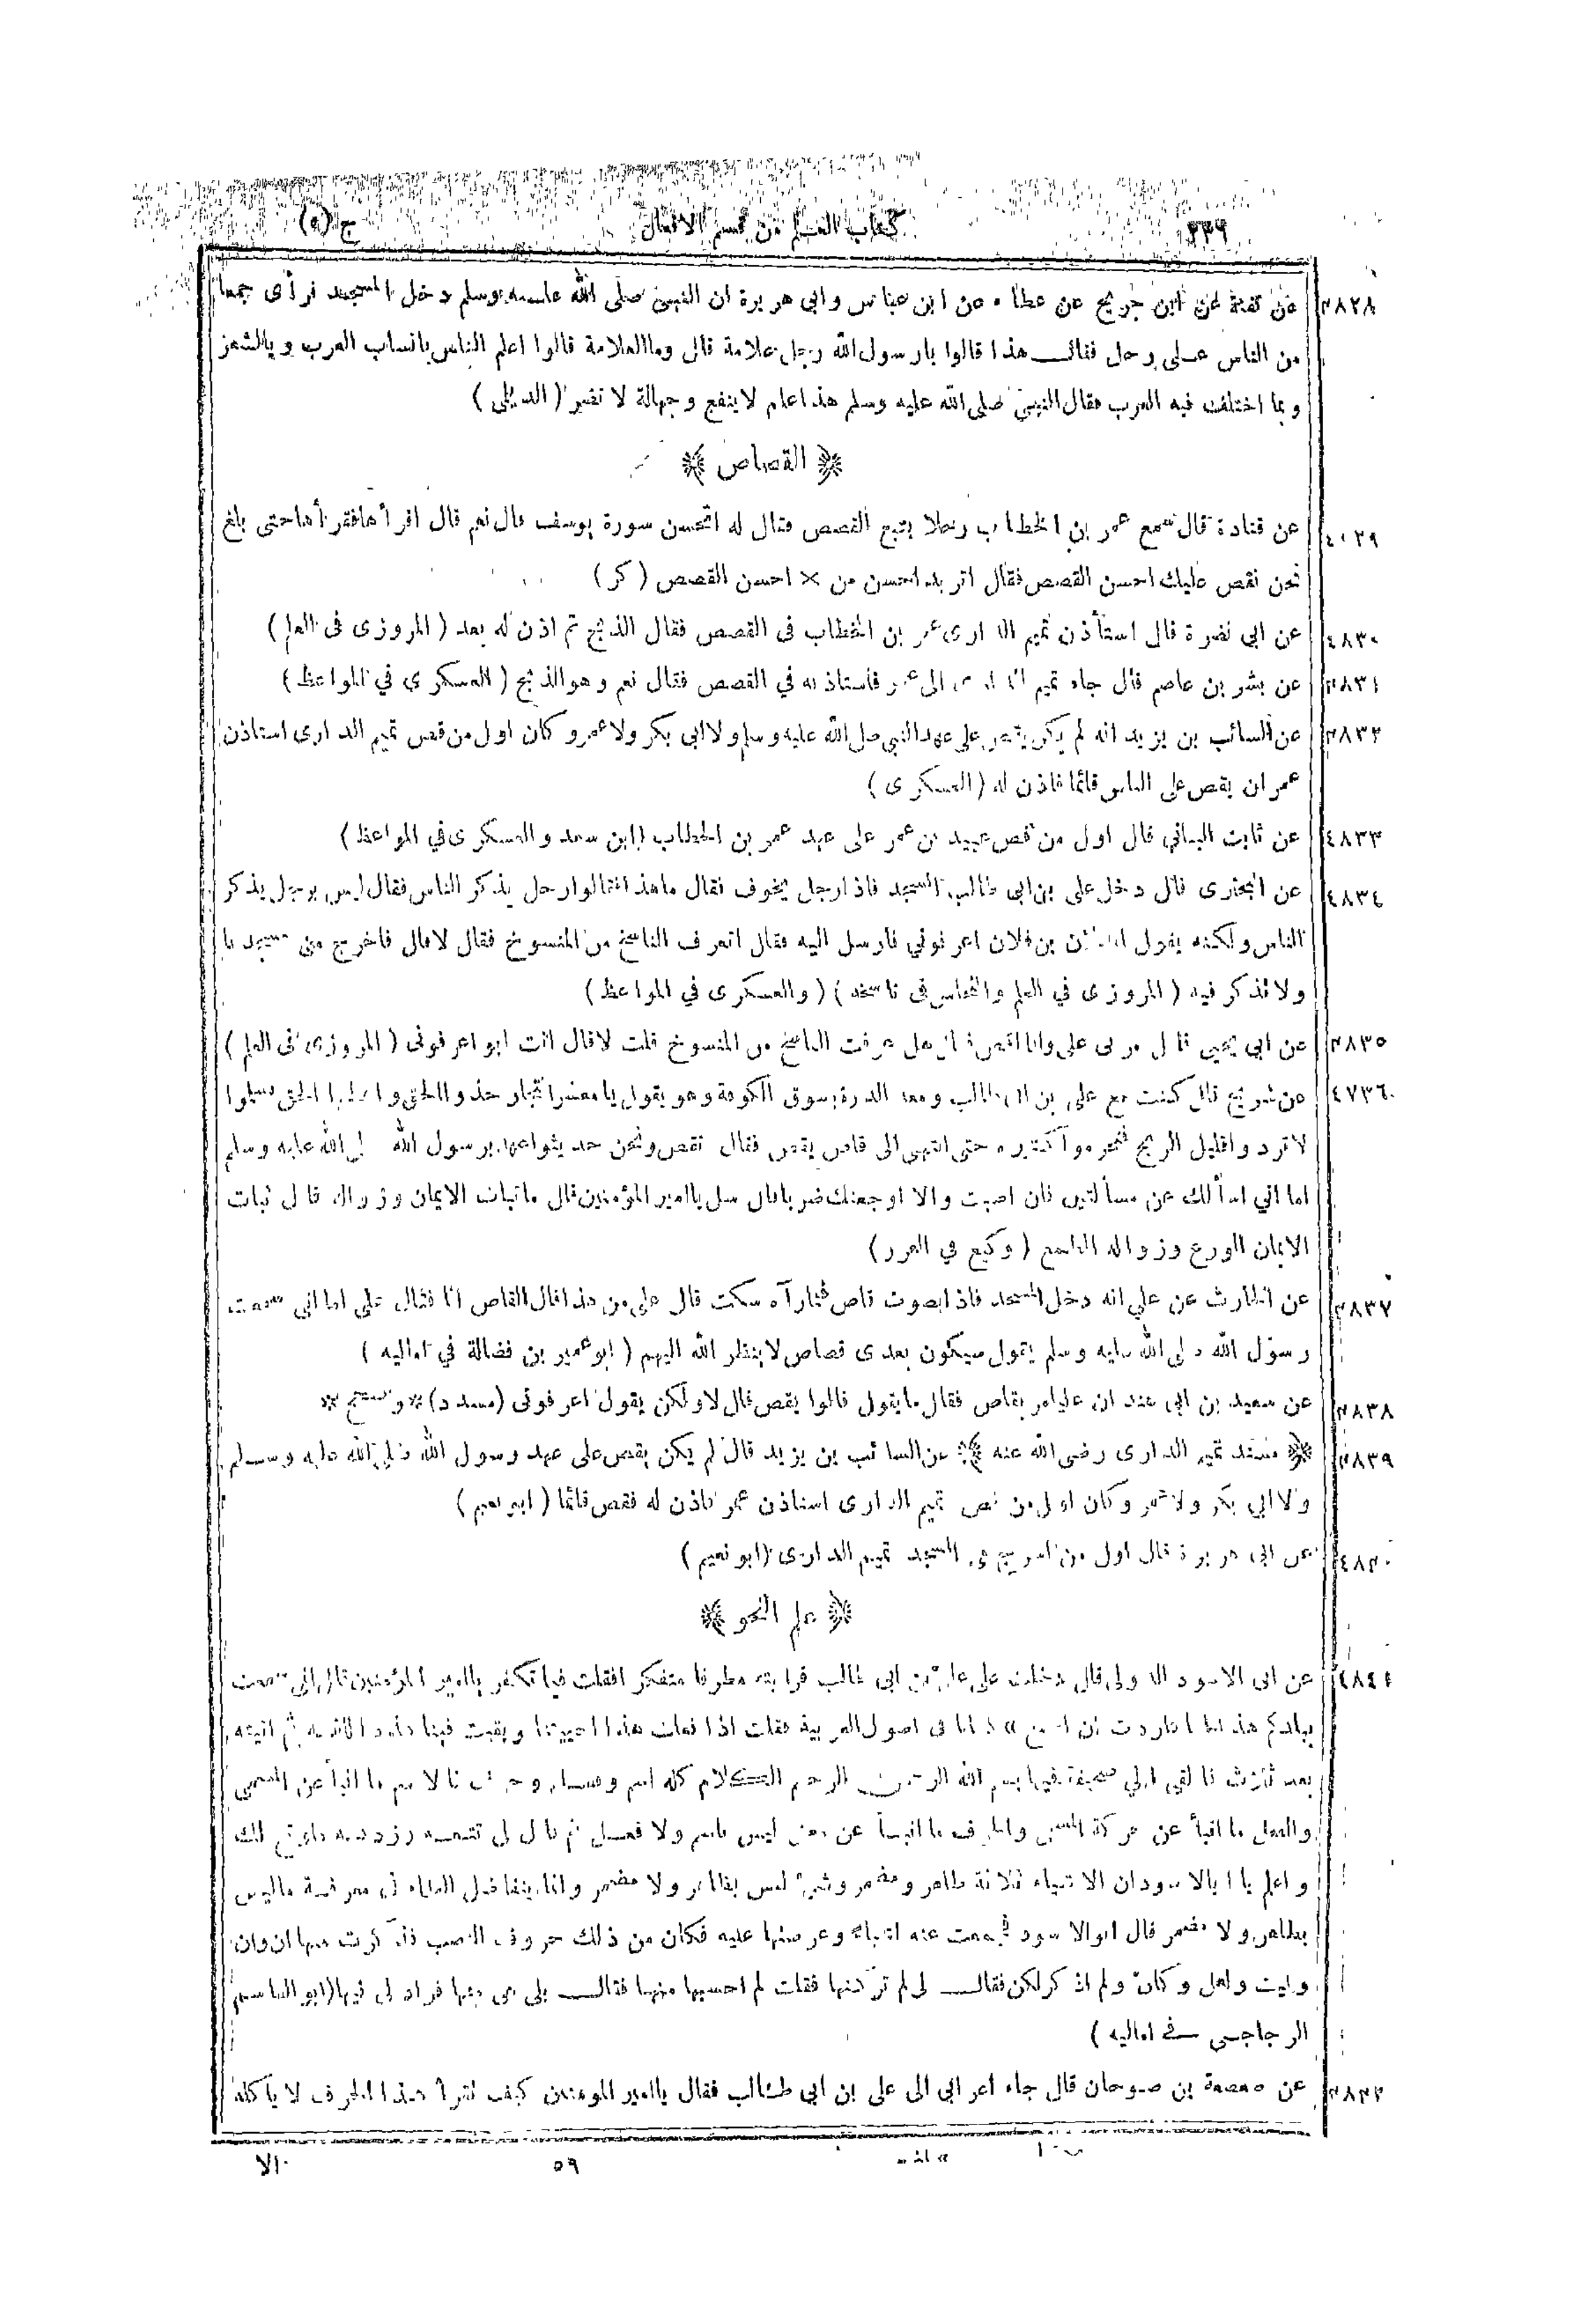 ٢٣٦ كتاب العلم من قسم الافعال ج (٥)
٤٨٢٨ عن بقية عن ابن جريج عن عطاء عن ابن عباس وابى هريرة ان النبى صلى الله عليه وسلم دخل المسجد فرأى جمعا
من الناس على رجل فقال هذا قالوا يا رسول الله رجل علامة قال وما العلامة قالوا اعلم الناس بانساب العرب وبالشعر
وبما اختلفت فيه العرب فقال النبى صلى الله عليه وسلم هذا علم لا ينفع وجهالة لا تضر (الديلمى)
﴿ القصاص ﴾
٤٨٢٩ عن قتادة قال سمع عمر بن الخطاب رجلا يتبع القصص فقال له اتحسن سورة يوسف قال نعم قال اقرأها فقرأها حتى بلغ
نحن نقص عليك احسن القصص فقال اتريد احسن من × احسن القصص (كر)
٤٨٣٠ عن ابى نضرة قال استأذن تميم الدارى عمر بن الخطاب فى القصص فقال الذبح ثم اذن له بعد (المروزى فى العلم)
٤٨٣١ عن بشر بن عاصم قال جاء تميم الدارى الى عمر فاستاذنه في القصص فقال نعم وهو الذبح (العسكرى في المواعظ)
٤٨٣٢ عن السائب بن يزيد انه لم يكن يقص على عهد النبى صلى الله عليه وسلم ولا ابى بكر ولا عمر وكان اول من قص تميم الدارى استاذن
عمر ان يقص على الناس قائما فاذن له (العسكرى)
٤٨٣٣ عن ثابت البنانى قال اول من قص عبيد بن عمر على عهد عمر بن الخطاب (ابن سعد والعسكرى في المواعظ)
٤٨٣٤ عن البخترى قال دخل على بن ابى طالب المسجد فاذا رجل يخوف فقال ما هذا فقالوا رجل يذكر الناس فقال ليس برجل يذكر
الناس ولكنه يقول انا فلان بن فلان اعرفونى فارسل اليه فقال اتعرف الناسخ من المنسوخ فقال لا قال فاخرج من مسجدنا
ولا تذكر فيه (المروزى في العلم والنحاس فى ناسخه) (والعسكرى في المواعظ)
٤٨٣٥ عن ابى يحيى قال مر بى على وانا اقص فقال هل عرفت الناسخ من المنسوخ قلت لا قال انت ابو اعرفونى (المروزى فى العلم)
٤٧٣٦ عن شريح قال كنت مع على بن ابى طالب ومعه الدرة بسوق الكوفة وهو يقول يا معشر التجار خذوا الحق واعطوا الحق تسلموا
لا تردوا قليل الربح فتحرموا كثيره حتى انتهى الى قاص يقص فقال نقص ونحن حديثوا عهد برسول الله صلى الله عليه وسلم
اما انى اسألك عن مسألتين فان اصبت والا اوجعتك ضربا قال سل يا امير المؤمنين قال ما ثبات الايمان وزواله قال ثبات
الايمان الورع وزواله الطمع (وكيع في الغرر)
٤٨٣٧ عن الحارث عن علي انه دخل المسجد فاذا بصوت قاص فلما رآه سكت قال على من هذا قال القاص انا فقال على اما انى سمعت
رسول الله صلى الله عليه وسلم يقول سيكون بعدى قصاص لا ينظر الله اليهم (ابو عمير بن فضالة في اماليه)
٤٨٣٨ عن سعيد بن ابى هند ان عليا مر بقاص فقال ما يقول قالوا يقص قال لا ولكن يقول اعرفونى (مسدد) * وصحح *
٤٨٣٩ ﴿ مسند تميم الدارى رضى الله عنه ﴾ عن السائب بن يزيد قال لم يكن يقص على عهد رسول الله صلى الله عليه وسلم
ولا ابى بكر ولا عمر وكان اول من قص تميم الدارى استاذن عمر فاذن له فقص قائما (ابو نعيم)
٤٨٤٠ عن ابى هريرة قال اول من اسرج فى المسجد تميم الدارى (ابو نعيم)
﴿ علم النحو ﴾
٤٨٤١ عن ابى الاسود الدولى قال دخلت على على بن ابى طالب فرايته مطرقا متفكرا فقلت فيما تكفر يا امير المؤمنين قال انى سمعت
ببلدكم هذا لحنا فاردت ان اصنع كتابا فى اصول العربية فقلت اذا فعلت هذا احييتنا وبقيت فينا هذه اللغة ثم اتيته
بعد ثلاث فالقى الى صحيفة فيها بسم الله الرحمن الرحيم الكلام كله اسم وفعل وحرف فالاسم ما انبأ عن المسمى
والفعل ما انبأ عن حركة المسمى والحرف ما انبأ عن معنى ليس باسم ولا فعل ثم قال لى تتبعه وزد فيه ما وقع لك
واعلم يا ابا الاسود ان الاشياء ثلاثة ظاهر ومضمر وشئ ليس بظاهر ولا مضمر وانما يتفاضل العلماء فى معرفة ما ليس
بظاهر ولا مضمر قال ابو الاسود فجمعت عنه اشياء وعرضتها عليه فكان من ذلك حروف النصب فذكرت منها ان وان
وليت ولعل وكان ولم اذكر لكن فقال لى لم تركتها فقلت لم احسبها منها فقال بلى هى منها فزاد لى فيها (ابو القاسم
الزجاجى فى اماليه)
٤٨٤٢ عن صعصعة بن صوحان قال جاء اعرابى الى على بن ابى طالب فقال يا امير المومنين كيف تقرأ هذا الحرف لا ياكله
٥٩ الا